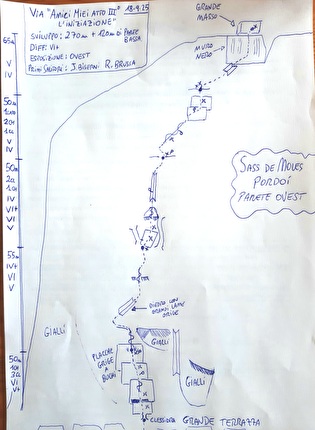 VIA "AMICI MIEI ATTO III 18.9.25
L'INIZIAZIONE"
SVILUPPO: 270m + 120m DI PARETE
BASSA
DIFF: VI+
ESPOSIZIONE: OVEST
PRIMI SALITORI: J. BIGFONI R. BRUSIA
GRANDE
MASSO
MURO
NERO
65m
V
IV
50m
V
IV
50m
2CH
1CH
IV
VI+
VI
V
55m
IV+
VI
V
50m
VI
V+
SASS DE MOLES
PORDOI
PARETE OVEST
DIEDRO CON
GRANDI LAME
GRIGIE
GIALLI
PLACCHE
GRIGIE A
BUCHI
GIALLI
GIALLI
CLESSIDRA
GRANDE TERRAZZA